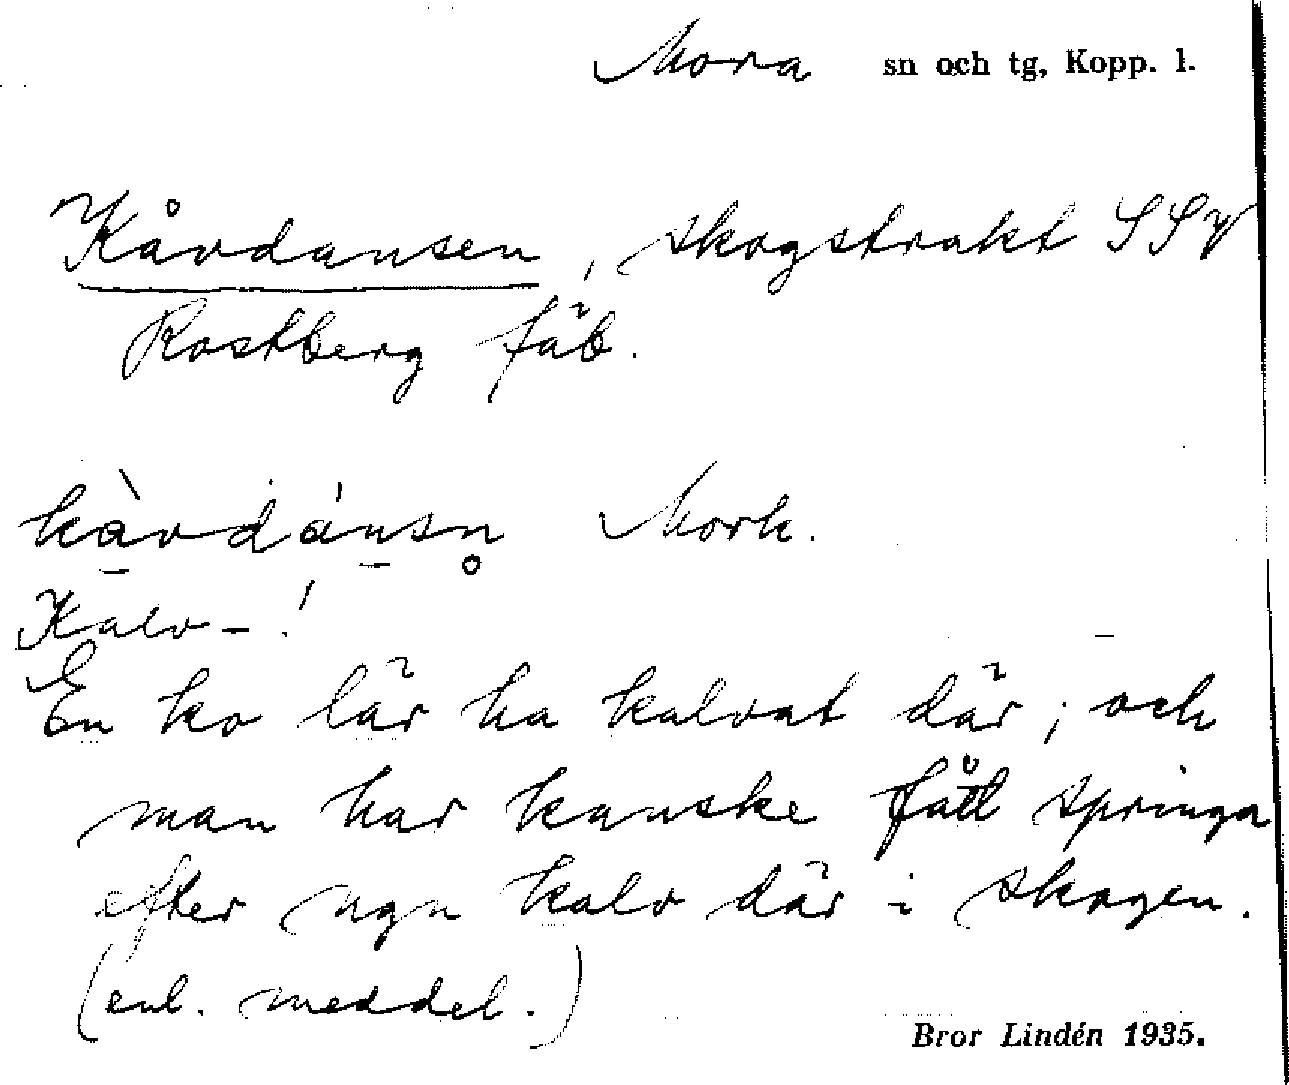 Mora sn och tg, Kopp. l.
Kåvdansen, skogstrakt SSV
Rostberg fäb.
kàvdánsn̥ Mork.
Kalv-!
En ko lär ha kalvat där; och
man har kanske fått springa
efter ngn kalv där i skogen.
(enl. meddel.)
Bror Lindén 1935.